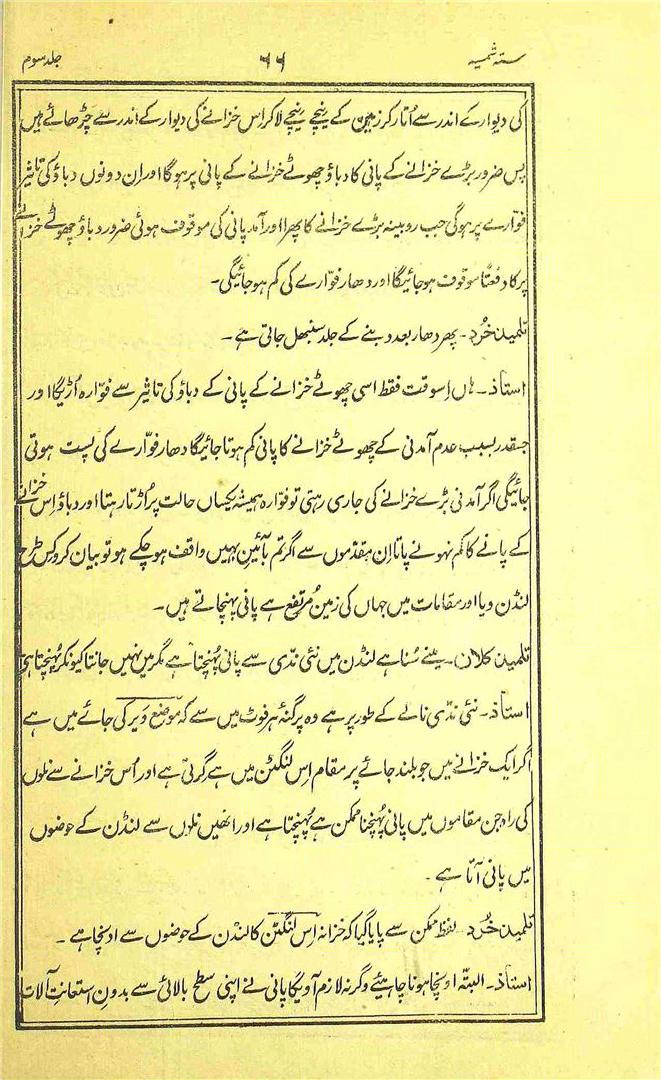 ستہ شمسیہ ۶۶ جلد سوم
کی دیوار کے اندر سے اُتار کر زمین کے نیچے نیچے لا کر اس خزانے کی دیوار کے اندر سے چڑھائے ہیں
پس ضرور بڑے خزانے کے پانی کا دباؤ چھوٹے خزانے کے پانی پر ہوگا اور اِن دونوں دباؤ کی تاثیر
فوّارے پر ہوگی جب روبینہ بڑے خزانے کا پھرا اور آمد پانی کی موقوف ہوئی ضرور دباؤ چھوٹے خزانے
پر کا دفعتًا موقوف ہو جائیگا اور دھار فوّارے کی کم ہو جائیگی۔
تلمیذ خُرد۔ پھر دھار بعد دبنے کے جلد سنبھل جاتی ہے۔
استاذ۔ ہاں اِسوقت فقط اسی چھوٹے خزانے کے پانی کے دباؤ کی تاثیر سے فوّارہ اُڑیگا اور
جسقدر بسبب عدم آمدنی کے چھوٹے خزانے کا پانی کم ہوتا جائیگا دھار فوّارے کی پست ہوتی
جائیگی اگر آمدنی بڑے خزانے کی جاری رہتی تو فوّارہ ہمیشہ یکساں حالت پر اُڑتا رہتا اور دباؤ اِس خزانے
کے پانے کا کم نہونے پاتا اِن مقدّموں سے اگر تم بآئین بہیں واقف ہو چکے ہو تو بیان کرو کس طرح
لنڈن ویا اور مقامات میں جہاں کی زمین مُرتفع ہے پانی پہنچاتے ہیں۔
تلمیذ کلان۔ مینے سُنا ہے لنڈن میں نئی ندّی سے پانی پُہنچتا ہے مگر میں نہیں جانتا کیونکر پُہنچتا ہے
استاذ۔ نئی ندّی نالے کے طور پر ہے وہ پرگنۂ ہرفوٹ میں سے کہ موضع ویر کی جائے میں ہے
اگر ایک خزانے میں جو بلند جائے پر مقام اِس لنگٹن میں ہے گرتی ہے اور اُس خزانے سے نلوں
کی راہ جن مقاموں میں پانی پُہنچنا ممکن ہے پُہنچتا ہے اور انھیں نلوں سے لنڈن کے حوضوں
میں پانی آتا ہے۔
تلمیذ خُرد۔ لفظ ممکن سے پایا گیا کہ خزانہ اِس لنگٹن کا لنڈن کے حوضوں سے اونچا ہے۔
استاذ۔ البتّہ اونچا ہونا چاہیئے وگرنہ لازم آویگا پانی نے اپنی سطح بالائی سے بدونِ استعانت آلات